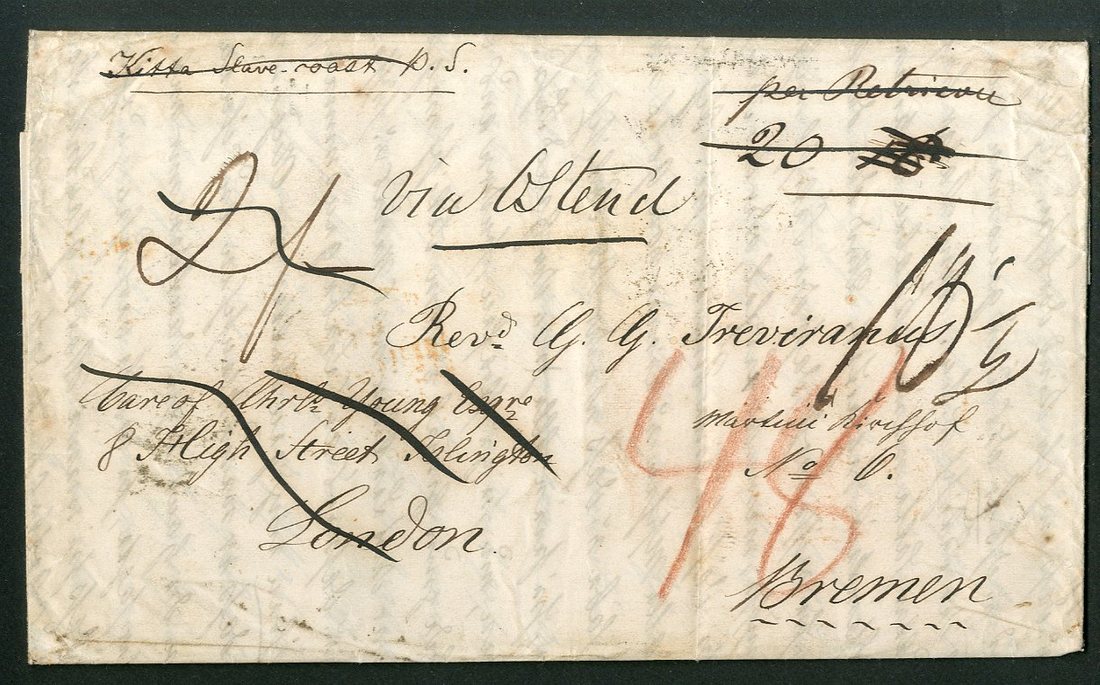 Kitta Slave-coast p. S.
per Retriever
20
via Ostend
2/
Revd. G. G. Treviranus
Care of Chrls Young Esqre
8 High Street Islington
London.
Martini Kirchhof
No 6.
48
Bremen